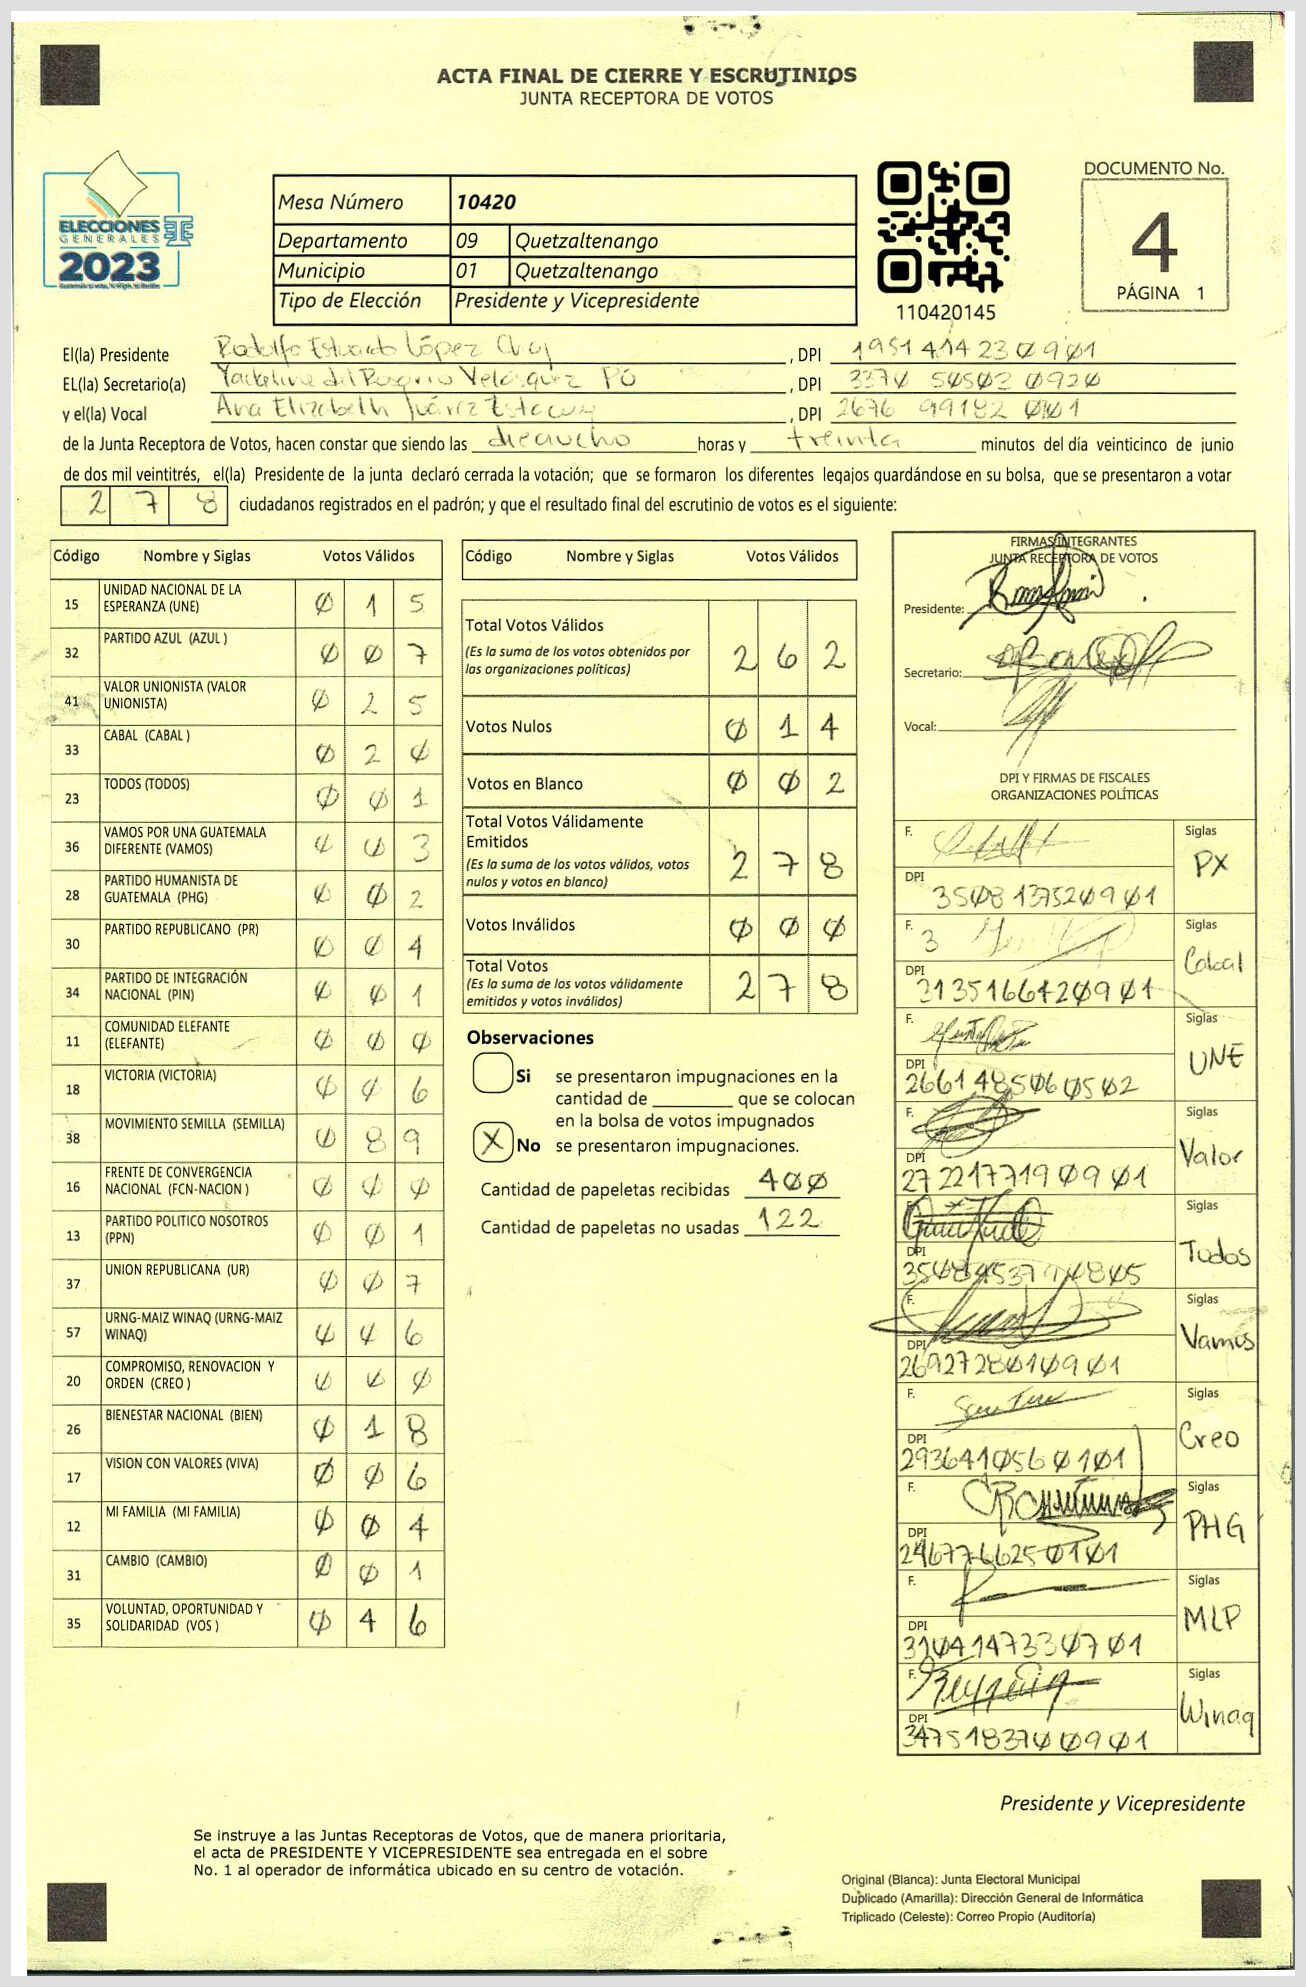 ACTA FINAL DE CIERRE Y ESCRUTINIOS
JUNTA RECEPTORA DE VOTOS
ELECCIONES
GENERALES
2023
Mesa Número 10420
Departamento 09 Quetzaltenango
Municipio 01 Quetzaltenango
Tipo de Elección Presidente y Vicepresidente
110420145
DOCUMENTO No.
4
PÁGINA 1
El(la) Presidente Rodolfo Estuardo López , DPI 1951414230901
EL(la) Secretario(a) Yackeline del Rosario Velásquez , DPI 3370 50503 0920
y el(la) Vocal Ana Elizabeth Juárez , DPI 2676 99182 0901
de la Junta Receptora de Votos, hacen constar que siendo las dieciocho horas y treinta minutos del día veinticinco de junio
de dos mil veintitrés, el(la) Presidente de la junta declaró cerrada la votación; que se formaron los diferentes legajos guardándose en su bolsa, que se presentaron a votar
2 7 8 ciudadanos registrados en el padrón; y que el resultado final del escrutinio de votos es el siguiente:
Código Nombre y Siglas Votos Válidos
15 UNIDAD NACIONAL DE LA ESPERANZA (UNE) 0 1 5
32 PARTIDO AZUL (AZUL ) 0 0 7
41 VALOR UNIONISTA (VALOR UNIONISTA) 0 2 5
33 CABAL (CABAL ) 0 2 0
23 TODOS (TODOS) 0 0 1
36 VAMOS POR UNA GUATEMALA DIFERENTE (VAMOS) 0 0 3
28 PARTIDO HUMANISTA DE GUATEMALA (PHG) 0 0 2
30 PARTIDO REPUBLICANO (PR) 0 0 4
34 PARTIDO DE INTEGRACIÓN NACIONAL (PIN) 0 0 1
11 COMUNIDAD ELEFANTE (ELEFANTE) 0 0 0
18 VICTORIA (VICTORIA) 0 0 6
38 MOVIMIENTO SEMILLA (SEMILLA) 0 8 9
16 FRENTE DE CONVERGENCIA NACIONAL (FCN-NACION ) 0 0 0
13 PARTIDO POLITICO NOSOTROS (PPN) 0 0 1
37 UNION REPUBLICANA (UR) 0 0 7
57 URNG-MAIZ WINAQ (URNG-MAIZ WINAQ) 0 0 6
20 COMPROMISO, RENOVACION Y ORDEN (CREO ) 0 0 0
26 BIENESTAR NACIONAL (BIEN) 0 1 8
17 VISION CON VALORES (VIVA) 0 0 6
12 MI FAMILIA (MI FAMILIA) 0 0 4
31 CAMBIO (CAMBIO) 0 0 1
35 VOLUNTAD, OPORTUNIDAD Y SOLIDARIDAD (VOS ) 0 4 6
Código Nombre y Siglas Votos Válidos
Total Votos Válidos 2 6 2
(Es la suma de los votos obtenidos por
las organizaciones políticas)
Votos Nulos 0 1 4
Votos en Blanco 0 0 2
Total Votos Válidamente
Emitidos 2 7 8
(Es la suma de los votos válidos, votos
nulos y votos en blanco)
Votos Inválidos 0 0 0
Total Votos 2 7 8
(Es la suma de los votos válidamente
emitidos y votos inválidos)
Observaciones
Si se presentaron impugnaciones en la
cantidad de ________ que se colocan
en la bolsa de votos impugnados
X No se presentaron impugnaciones.
Cantidad de papeletas recibidas 400
Cantidad de papeletas no usadas 122
FIRMAS INTEGRANTES
JUNTA RECEPTORA DE VOTOS
Presidente:
Secretario:
Vocal:
DPI Y FIRMAS DE FISCALES
ORGANIZACIONES POLÍTICAS
F. Siglas PX
DPI 3508137520901
F. Siglas Cabal
DPI 3135166420901
F. Siglas UNE
DPI 2661485060502
F. Siglas Valor
DPI 2722177190901
F. Siglas Todos
DPI
F. Siglas Vamos
DPI 2692728010901
F. Siglas Creo
DPI 2936410560101
F. Siglas PHG
DPI 2467766250101
F. Siglas MLP
DPI 3104147330701
F. Siglas Winaq
DPI 3475183700901
Presidente y Vicepresidente
Se instruye a las Juntas Receptoras de Votos, que de manera prioritaria,
el acta de PRESIDENTE Y VICEPRESIDENTE sea entregada en el sobre
No. 1 al operador de informática ubicado en su centro de votación.
Original (Blanca): Junta Electoral Municipal
Duplicado (Amarilla): Dirección General de Informática
Triplicado (Celeste): Correo Propio (Auditoría)